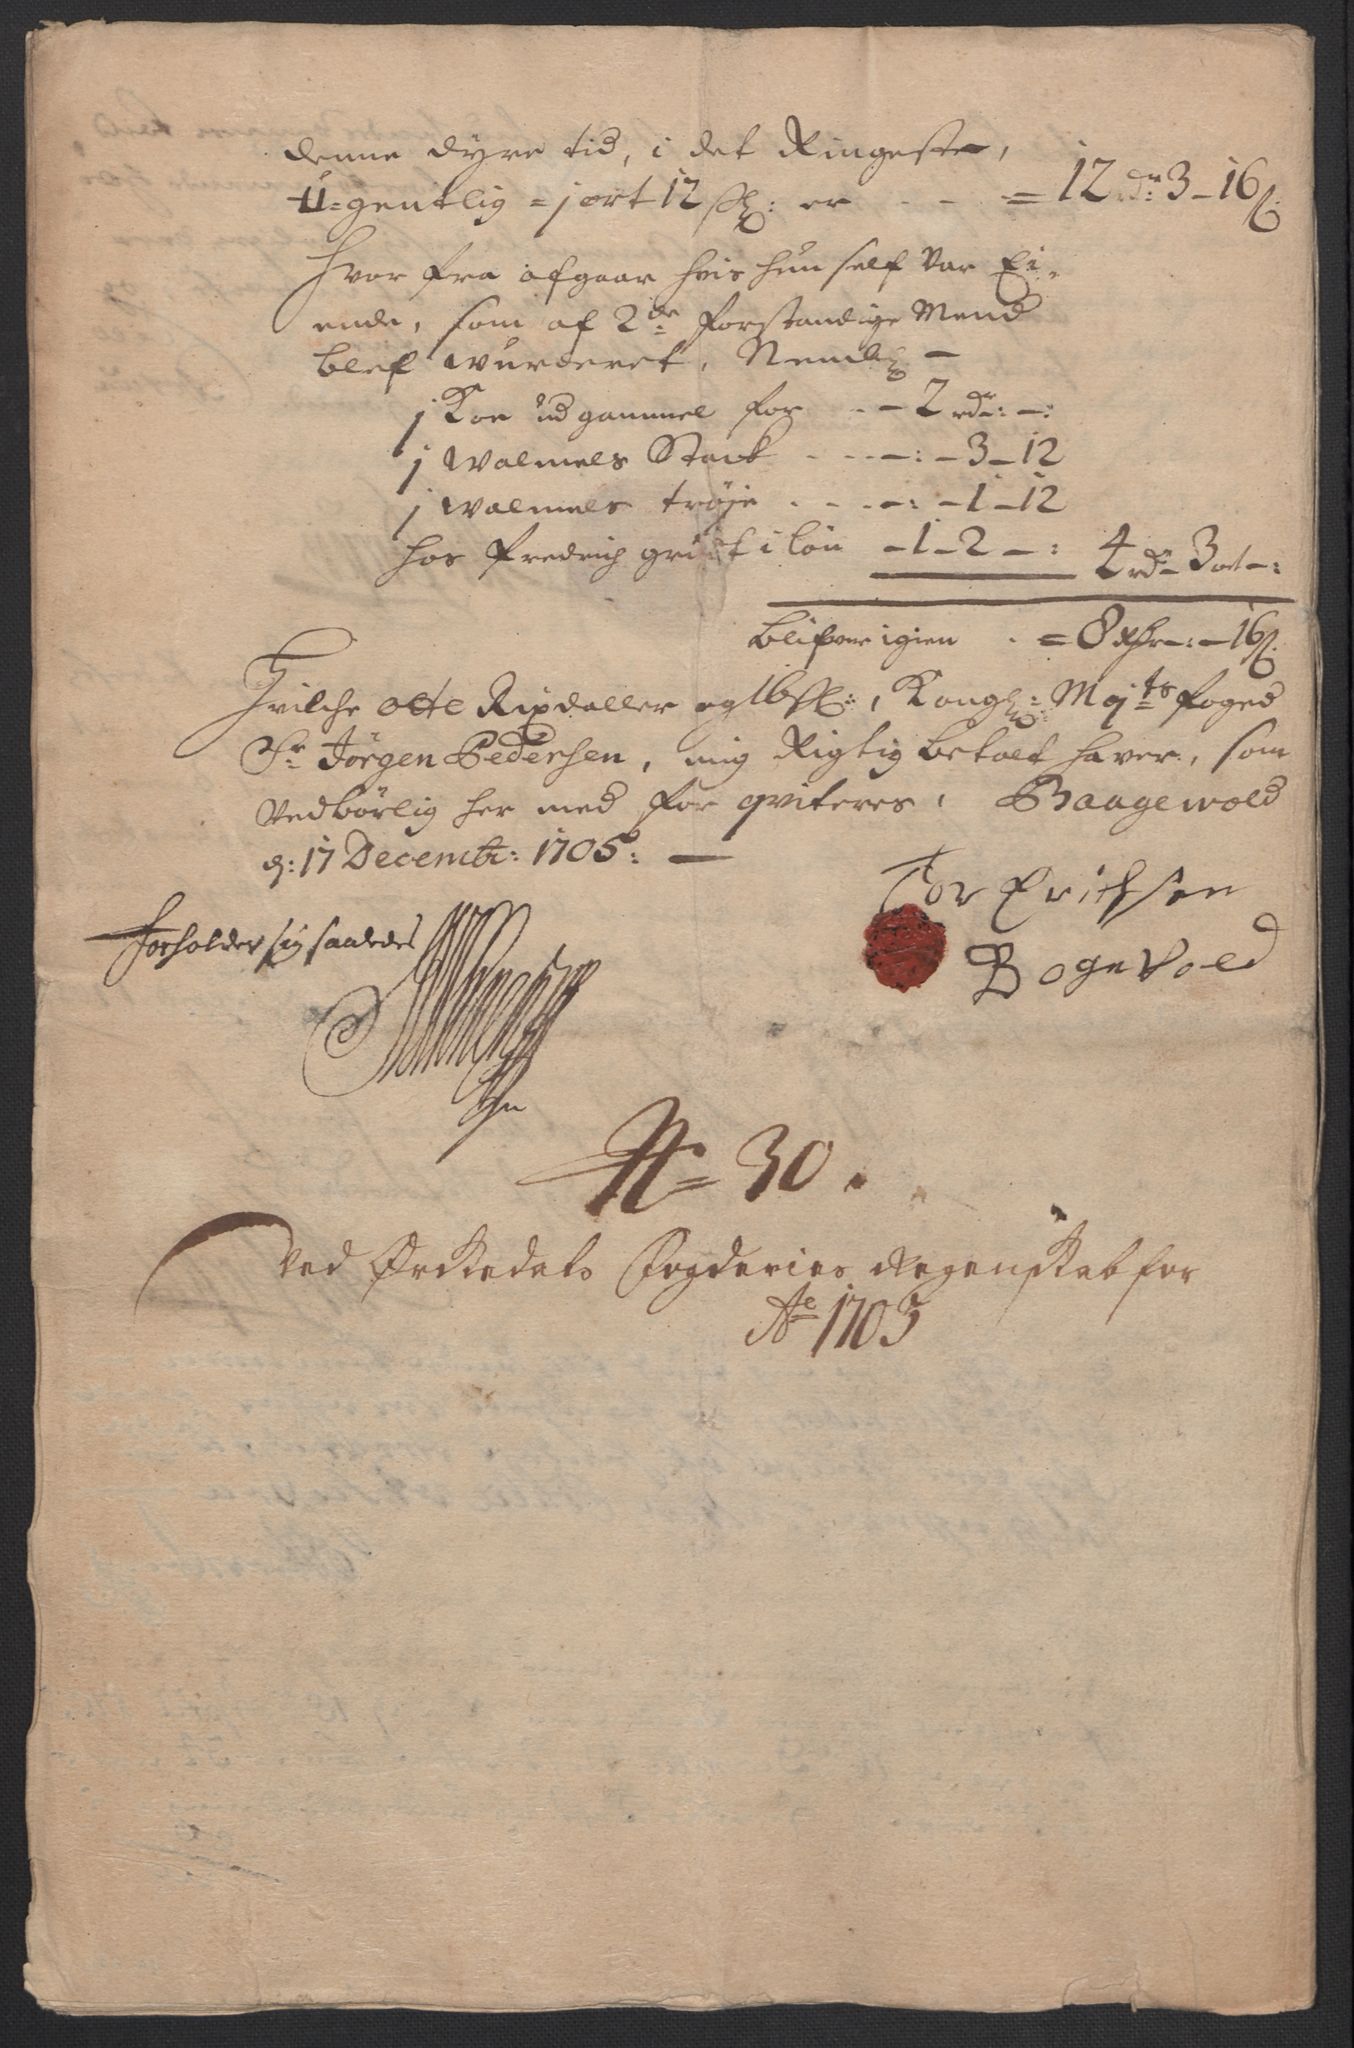 denne dyre tid, i det Ringeste,
U=gentlig = j ort 12 sk: er - - = 12 rdr: 3 - 16 s:
Hvor fra afgaar hvis hun self var Ei-
ende, som af 2de forstandige Mend
blef wurderet, Nemlig -
j Koe ud gammel for - - 2 rdr: - :
j Walmels Stack - - - : - 3 - 12
j walmels trøje - - - : - 1 - 12
hos Fredrich i løn - 1 - 2 - : 4 rdr - 3 ort - :
blifver igien - = 8 rdr - : - 16 s:
Hvilche otte Rixdaller og 16 sk:, Kongl: Majts foged
Sr Jörgen Pedersen, mig Rigtig betalt haver, som
vedbörlig her med for qviteres, Baagewold
d: 17 Decembr: 1705: -
Tor Erichsen
Bogevold
forholder sig saaledes
No 30.
Ved Ørckedals Fogderies Regenskab for
Ao 1705